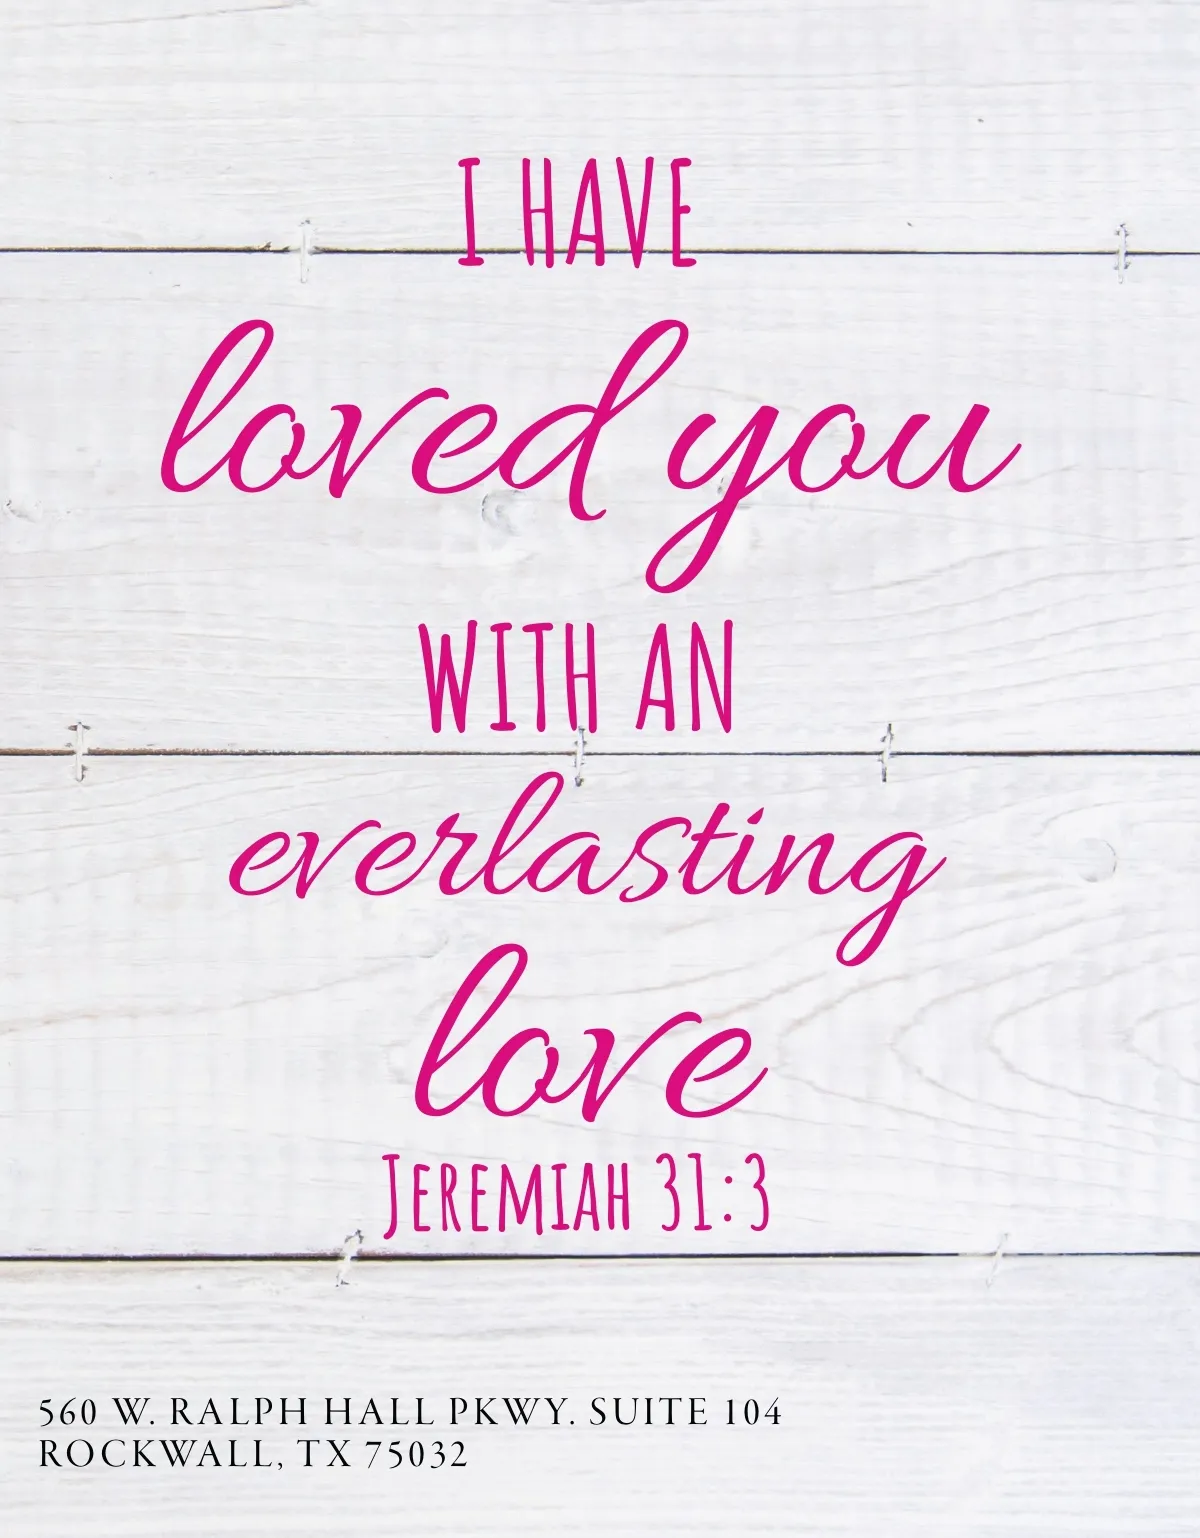 I HAVE
loved you
WITH AN
everlasting
love
JEREMIAH 31:3
560 W. RALPH HALL PKWY. SUITE 104
ROCKWALL, TX 75032